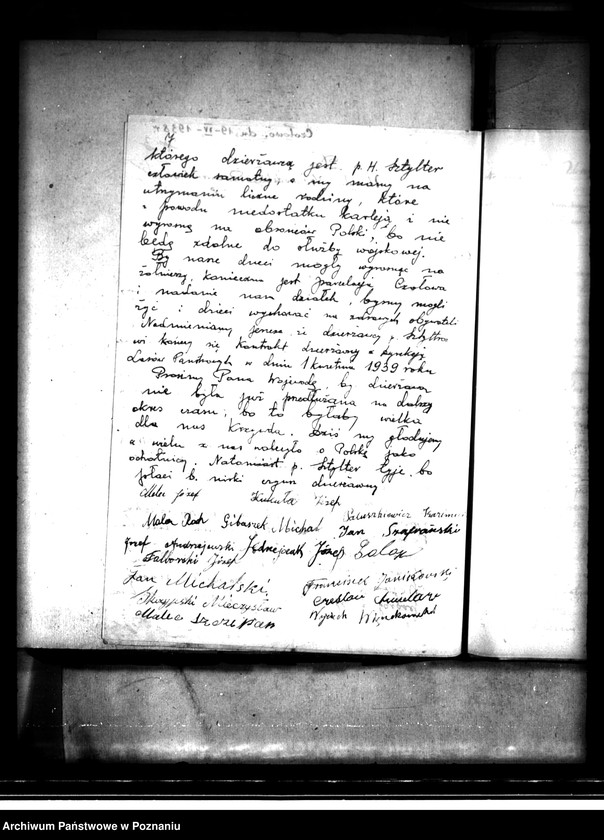 którego dzierżawcą jest p. H. Sztylter
człowiek samotny, a my mamy na
utrzymaniu liczne rodziny, które
z powodu niedostatku karleją i nie
wyrosną na obrońców Polski, bo nie
będą zdolne do służby wojskowej.
By nasze dzieci mogły wyrosnąć na
żołnierzy, konieczna jest parcelacja Czołowa
i nadanie nam działek, byśmy mogli
żyć i dzieci wychować na zdrowych obywateli
Nadmieniamy jeszcze że dzierżawcy, Sztyltro
wi kończy się kontrakt dzierżawy z Dyrekcją
Lasów Państwowych w dniu 1 kwietnia 1939 roku
Prosimy Pana Wojewodę, by dzierżawa
nie była już przedłużana na dalszy
okres czasu, bo to byłaby wielka
dla nas krzywda. Dziś my głodujemy
a wielu z nas walczyło o Polskę jako
ochotnicy. Natomiast p. Sztylter tyje, bo
płaci b. niski czynsz dzierżawny
Malec Józef Józef
Gibasek Michał Jan Szafrański
Józef Andrzejewski Jędrzejczak Józef
Falborski Józef
Jan Michalski Franciszek Janiszewski
Mieczysław Czesław
Malec Szczepan
Czołowo, dn. 19-IV-1938 r.
Archiwum Państwowe w Poznaniu